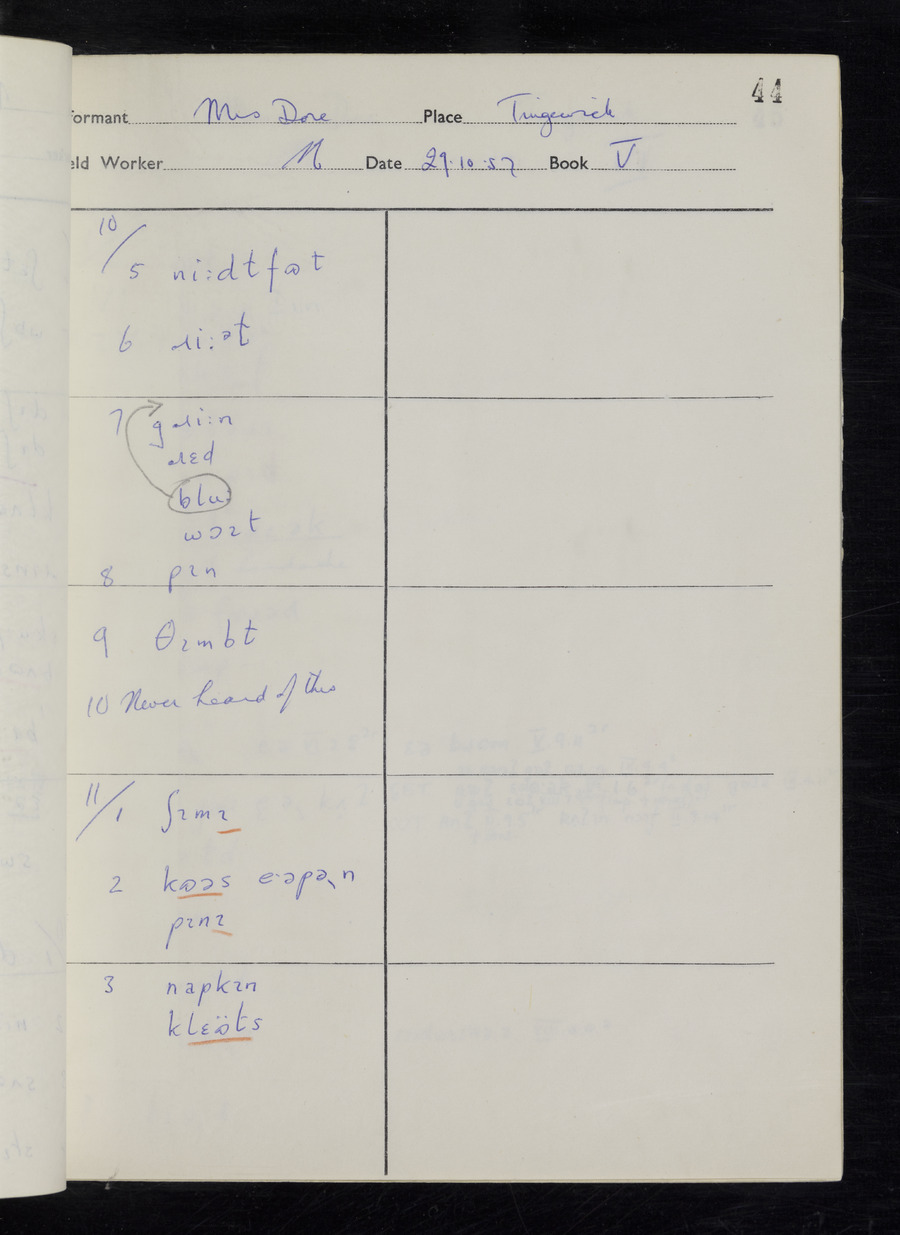 44
formant Mrs Dore Place Tingewick
eld Worker N Date 29.10.57 Book V
10/
5 ni:dtfɷt
6 ɹi:ət
7 gɹi:n
ɹɛd
blu
wɔɪt
8 pɪn
9 θɪmbt
10 Never heard of this
11/1 ʃɪmɪ
2 kɷəs e·əpə̩n
pɪnɪ
3 napkɪn
klɛɵ̈ts